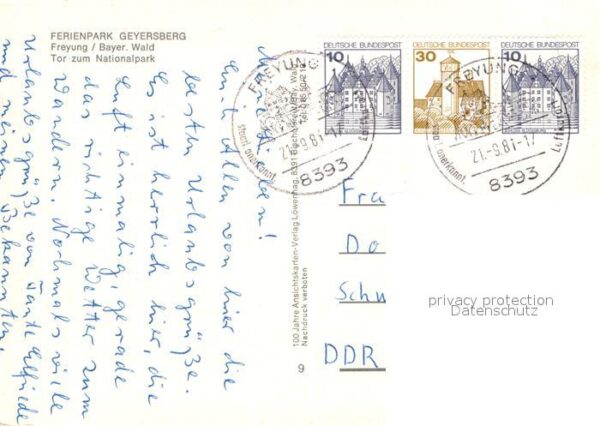 FERIENPARK GEYERSBERG
Freyung / Bayer. Wald
Tor zum Nationalpark
Meine Lieben!
Euch Allen von hier die
besten Urlaubsgrüße.
Es ist herrlich hier, die
Luft einmalig, gerade
das richtige Wetter zum
Wandern. Nochmals viele
Urlaubsgrüße von Tante Elfriede
und meinen Bekannten.
100 Jahre Ansichtskarten-Verlag Löwenhag 8391
Nachdruck verboten
9
DEUTSCHE BUNDESPOST
10
DEUTSCHE BUNDESPOST
30
DEUTSCHE BUNDESPOST
10
FREYUNG
staatl. anerkannt.
Luftkurort
21.-9.81-17
8393
FREYUNG
staatl. anerkannt.
Luftkurort
21.-9.81-17
8393
Fra
Do
Schu
DDR
privacy protection
Datenschutz